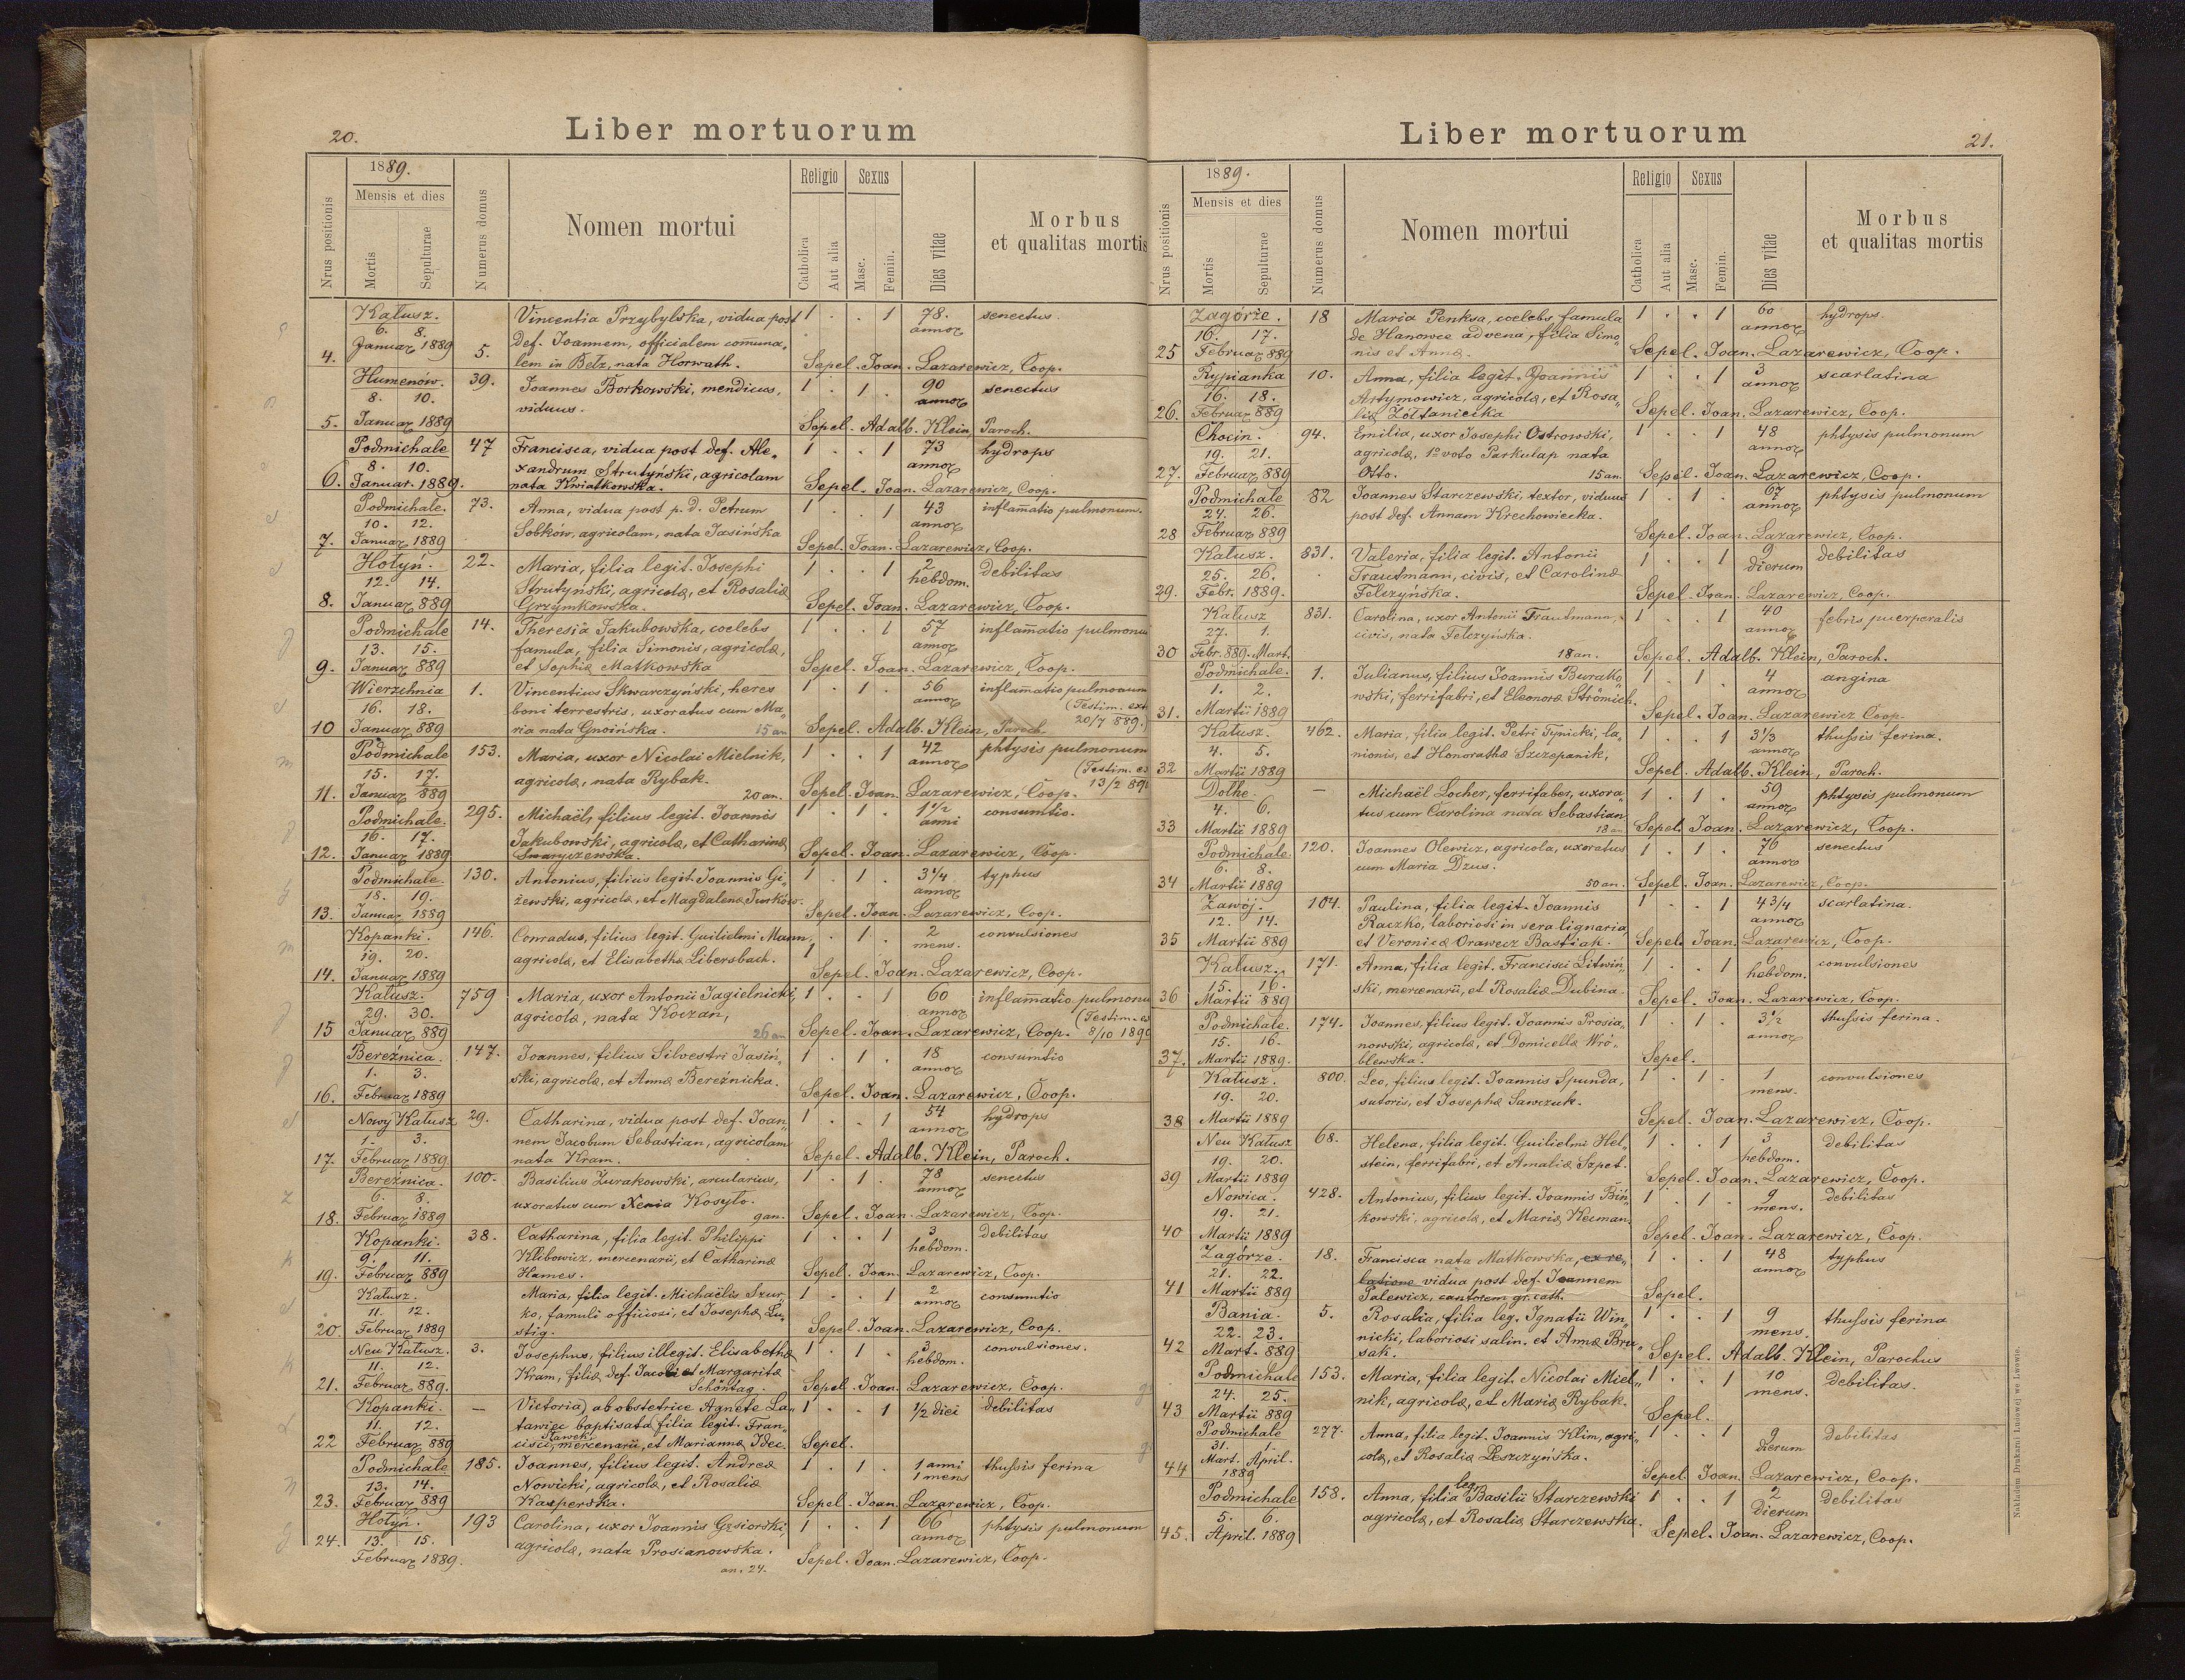 20.
Liber mortuorum
Nrus positionis
1889.
Mensis et dies
Mortis
Sepulturae
Numerus domus
Nomen mortui
Religio
Catholica
Aut alia
Sexus
Masc.
Femin.
Dies vitae
Morbus
et qualitas mortis
Kałusz. Vincentia Przybylska, vidua post 1 . . 1 78. senectus.
6. 8. annor
Januar 1889 5. Def. Joannem, officialem communa„
4. lem in Bełz, nata Horwath. Sepel. Joan. Lazarewicz, Coop.
Humenów. 39. Joannes Borkowski, mendicus, 1 . 1 . 90 senectus
8. 10. viduus. annor
5. Januar 1889 Sepel. Adalb. Klein, Paroch.
Podmichale 47 Francisca, vidua post def. Ale„ 1 . . 1 73 hydrops
8. 10. xandrum Strutyński, agricolam annor
6. Januar. 1889. nata Kwiatkowska. Sepel. Joan. Lazarewicz, Coop.
Podmichale. 73. Anna, vidua post p. d. Petrum 1 . . 1 43 inflamatio pulmonum.
10. 12. Sobków, agricolam, nata Jasińska annor
7. Januar 1889 Sepel. Joan. Lazarewicz, Coop.
Hołyń. 22. Maria, filia legit. Josephi 1 . . 1 2 Debilitas
12. 14. Strutyński, agricolæ, et Rosaliæ hebdom.
8. Januar 889 Grzymkowska. Sepel. Joan. Lazarewicz, Coop.
Podmichale 14. Theresia Jakubowska, coelebs 1 . . 1 57 inflamatio pulmonu
13. 15. famula, filia Simonis, agricolæ, annor
9. Januar 889 et Sophiæ Matkowska Sepel. Joan. Lazarewicz, Coop.
Wierzchnia 1. Vincentius Skwarczyński, heres 1 . 1 . 56 inflamatio pulmonum
16. 18. boni terrestris, uxoratus cum Ma„ annor (Testim. ext
10 Januar 889 ria nata Gnoińska. 15 an Sepel. Adalb. Klein, Paroch. 20/7 889.)
Podmichale 153. Maria, uxor Nicolai Mielnik, 1 . . 1 42 phtysis pulmonum
15. 17. agricolæ, nata Rybak. annor (Testim. ex
11. Januar 889 20 an. Sepel. Joan. Lazarewicz, Coop. 13/2 89
Podmichale. 295. Michaël, filius legit. Joannis 1 . 1 . 1 1/2 consumtio.
16. 17. Jakubowski, agricolæ, et Catharinæ anni
12. Januar 1889 Smaryczewska. Sepel. Joan. Lazarewicz, Coop.
Podmichale. 130. Antonius, filius legit. Joannis Gi„ 1 . 1 . 3 1/4 typhus
18. 19. żewski, agricolæ, et Magdalenæ Jurków. annor
13. Januar 1889 Sepel. Joan. Lazarewicz, Coop.
Kopanki. 146. Conradus, filius legit. Guilielmi Mann, . 1 . 2 convulsiones
19. 20. agricolæ, et Elisabethæ Libersbach. 1 mens.
14. Januar 1889 Sepel. Joan. Lazarewicz, Coop.
Kałusz. 759 Maria, uxor Antonii Jagielnicki, 1 . . 1 60 inflamatio pulmonu
29. 30. agricolæ, nata Koczan, annor (Testim. ex
15 Januar 889 26 an Sepel. Joan. Lazarewicz, Coop. 8/10 189
Bereźnica. 147. Joannes, filius Silvestri Jasiń„ 1 . 1 . 18 consumtio
1. 3. ski, agricolæ, et Annæ Bereźnicka. annor
16. Februar 1889 Sepel. Joan. Lazarewicz, Coop.
Nowy Kałusz 29. Catharina, vidua post def. Joan„ 1 . . 1 54 hydrops
1. 3. nem Jacobum Sebastian, agricolam annor
17. Februar 1889 nata Kram. Sepel. Adalb. Klein, Paroch.
Bereźnica. 100. Basilius Żurakowski, arcularius, 1 . 1 . 78 senectus
6. 8. uxoratus cum Xenia Kosyło. annor
18. Februar 1889 9 an. Sepel. Joan. Lazarewicz, Coop.
Kopanki. 38. Catharina, filia legit. Philippi 1 . . 1 3 Debilitas
9. 11. Klibowicz, mercenarii, et Catharinæ hebdom.
19. Februar 889 Hames. Sepel. Joan. Lazarewicz, Coop.
Kałusz. Maria, filia legit. Michaëlis Szur„ 1 . . 1 2 consumtio
11. 12. ko, famuli officiosi, et Josephæ Lu„ annor
20. Februar 1889 stig. Sepel. Joan. Lazarewicz, Coop.
Neu Kałusz. 3. Josephus, filius illegit. Elisabethæ 1 . 1 . 3 convulsiones.
11. 12. Kram, filiæ def. Jacobi et Margaritæ hebdom.
21. Februar 889. Schöntag. Sepel. Joan. Lazarewicz, Coop.
Kopanki. — Victoria, ab obstetrice Agnete La„ 1 . . 1 1/2 diei debilitas
11. 12. tawiec baptisata, filia legit. Fran„
22 Februar 889 cisci Sławek, mercenarii, et Mariannæ Idec. Sepel.
Podmichale 185. Joannes, filius legit. Andreæ 1 . 1 . 1 anni thussis ferina
13. 14. Nowicki, agricolæ, et Rosaliæ 1 mens
23. Februar 889 Kasperska. Sepel. Joan. Lazarewicz, Coop.
Hołyń. 193 Carolina, uxor Joannis Gęsiorski, 1 . . 1 66 phtysis pulmonum
24. 13. 15. agricolæ, nata Prosianowska. annor
Februar 1889. an. 24. Sepel. Joan. Lazarewicz, Coop.
Liber mortuorum
21.
Nrus positionis
1889.
Mensis et dies
Mortis
Sepulturae
Numerus domus
Nomen mortui
Religio
Catholica
Aut alia
Sexus
Masc.
Femin.
Dies vitae
Morbus
et qualitas mortis
Zagórze. 18 Maria Penksa, coelebs, famula 1 . . 1 60 hydrops.
16. 17. de Hanowce advena, filia Simo„ annor
25 Februar 889 nis et Annæ. Sepel. Joan. Lazarewicz, Coop.
Rypianka 10. Anna, filia legit. Joannis 1 . . 1 3 scarlatina
16. 18. Artymowicz, agricolæ, et Rosa„ annor
26. Februar 889 liæ Żółtaniecka Sepel. Joan. Lazarewicz, Coop.
Chocin. 94. Emilia, uxor Josephi Ostrowski, 1 . 1 48 phtysis pulmonum
19. 21. agricolæ, 1º voto Parkulap nata annor
27. Februar 889 Otto. 15 an. Sepel. Joan. Lazarewicz, Coop.
Podmichale 82 Joannes Starczewski, textor, viduus 1 . 1 . 67 phtysis pulmonum
24. 26. post def. Annam Krechowiecka. annor
28 Februar 889 Sepel. Joan. Lazarewicz, Coop.
Kałusz. 831. Valeria, filia legit. Antonii 1 . . 1 9 debilitas
25. 26. Trautmann, civis, et Carolinæ dierum
29. Febr. 1889. Felczyńska. Sepel. Joan. Lazarewicz, Coop.
Kałusz 831. Carolina, uxor Antonii Trautmann, 1 . . 1 40 febris puerperalis
27. 1. civis, nata Felczyńska. annor
30 Febr. 889. Mart. 18 an. Sepel. Adalb. Klein, Paroch.
Podmichale. 1. Julianus, filius Joannis Burako„ 1 . 1 4 angina
1. 2. wski, ferrifabri, et Eleonoræ Strömich. annor
31. Martii 1889 Sepel. Joan. Lazarewicz Coop.
Kałusz. 462. Maria, filia legit. Petri Tynicki, la„ 1 . . 1 3 1/3 thussis ferina.
4. 5. nionis, et Honorathæ Szczepanik, annor
32 Martii 1889 Sepel. Adalb. Klein, Paroch.
Dolhe. — Michaël Locher, ferrifaber, uxora„ 1 . 1 . 59 phtysis pulmonum
4. 6. tus cum Carolina nata Sebastian annor
33 Martii 1889 18 an Sepel. Joan. Lazarewicz, Coop.
Podmichale. 120. Joannes Olewicz, agricola, uxoratus 1 . 1 . 76 senectus
6. 8. cum Maria Dzus. annor
34 Martii 1889 50 an. Sepel. Joan. Lazarewicz, Coop.
Zawój. 104. Paulina, filia legit. Joannis 1 . . 1 4 3/4 scarlatina.
12. 14. Raczko, laboriosi in sera lignaria, annor
35 Martii 889 et Veronicæ Orawecz Bastiak. Sepel. Joan. Lazarewicz, Coop.
Kałusz. 171. Anna, filia legit. Francisci Litwiń„ 1 . . 1 6 convulsiones
15. 16. ski, mercenarii, et Rosaliæ Dubina. hebdom.
36 Martii 889 Sepel. Joan. Lazarewicz, Coop.
Podmichale. 174. Joannes, filius legit. Joannis Prosia„ 1 . 1 . 3 1/2 thussis ferina.
15. 16. nowski, agricolæ, et Domicellæ Wró„ annor
37. Martii 1889. blewska. Sepel.
Kałusz. 800. Leo, filius legit. Joannis Spunda, 1 . 1 . 1 convulsiones
19. 20. sutoris, et Josephæ Sawczuk. mens.
38 Martii 1889 Sepel. Joan. Lazarewicz, Coop.
Neu Kałusz 68. Helena, filia legit. Guilielmi Hel„ 1 . . 1 3 debilitas
19. 20. stein, ferrifabri, et Amaliæ Szpet. hebdom.
39 Martii 1889 Sepel. Joan. Lazarewicz, Coop.
Nowica. 428. Antonius, filius legit. Joannis Biń„ 1 . 1 . 9 debilitas
19. 21. kowski, agricolæ, et Mariæ Kecman. mens.
40 Martii 1889 Sepel. Joan. Lazarewicz, Coop.
Zagórze. 18. Francisca nata Matkowska, ex re„ 1 . . 1 48 typhus
21. 22. latione vidua post def. Joannem annor
41 Martii 889 Palewicz, cantorem gr. cath. Sepel.
Bania. 5. Rosalia, filia leg. Ignatii Win„ 1 . . 1 9 thussis ferina
22. 23. nicki, laboriosi salin. et Annæ Bru„ mens.
42 Mart. 889 sak. Sepel. Adalb. Klein, Parochus
Podmichale 153. Maria, filia legit. Nicolai Miel„ 1 . . 1 10 Debilitas.
24. 25. nik, agricolæ, et Mariæ Rybak. mens.
43 Martii 889 Sepel.
Podmichale 277. Anna, filia legit. Joannis Klim, agri„ 1 . . 1 9 Debilitas
31. 1. colæ, et Rosaliæ Leszczyńska. dierum
44 Mart. April. 1889 Sepel. Joan. Lazarewicz, Coop.
Podmichale 158. Anna, filia leg. Basilii Starczewski 1 . . 1 2 Debilitas
5. 6. agricolæ, et Rosaliæ Starczewska. Dierum
45. April. 1889 Sepel. Joan. Lazarewicz, Coop.
Nakładem Drukarni Ludowej we Lwowie.